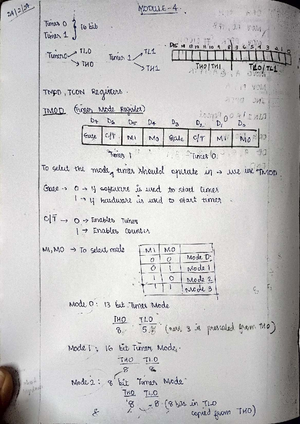 MODULE-4
Timer 0
Timer 1
16 bit
Timer0 TL0 TH0 Timer 1 TL1 TH1
TH0/TH1 TL0/TL1
TMOD, TCON Registers.
TMOD (Timer Mode Register)
D7 D6 D5 D4 D3 D2 D1 D0
Gate C/T M1 M0 Gate C/T M1 M0
Timer 1 Timer 0
To select the mode, timer should operate in → we use TMOD
Gate → 0 → if software is used to start timer
1 → if hardware is used to start timer.
C/T → 0 → Enables Timer
1 → Enables Counter
M1, M0 → To select mode
M1 M0
0 0 Mode 0
0 1 Mode 1
1 0 Mode 2
1 1 Mode 3
Mode 0: 13 bit Timer Mode
TH0 TL0
8 5 (next 3 is from TH0)
Mode 1: 16 bit Timer Mode
TH0 TL0
8 8
Mode 2: 8 bit Timer Mode
TH0 TL0
8 8 (8 bits in TL0
copied from TH0)